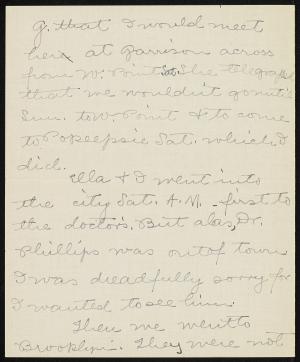 G. that I would meet
her at Garrison across
from W. Point Sat. She telegraphed
that we wouldn't go until
Sun. to W. Point & to come
to Pokeepsie Sat. which I
did.
Ella & I went into
the city Sat. A.M. - first to
the doctors. But alas, Dr.
Phillips was out of town
I was dreadfully sorry for
I wanted to see him.
Then we went to
Brooklyn. They were not